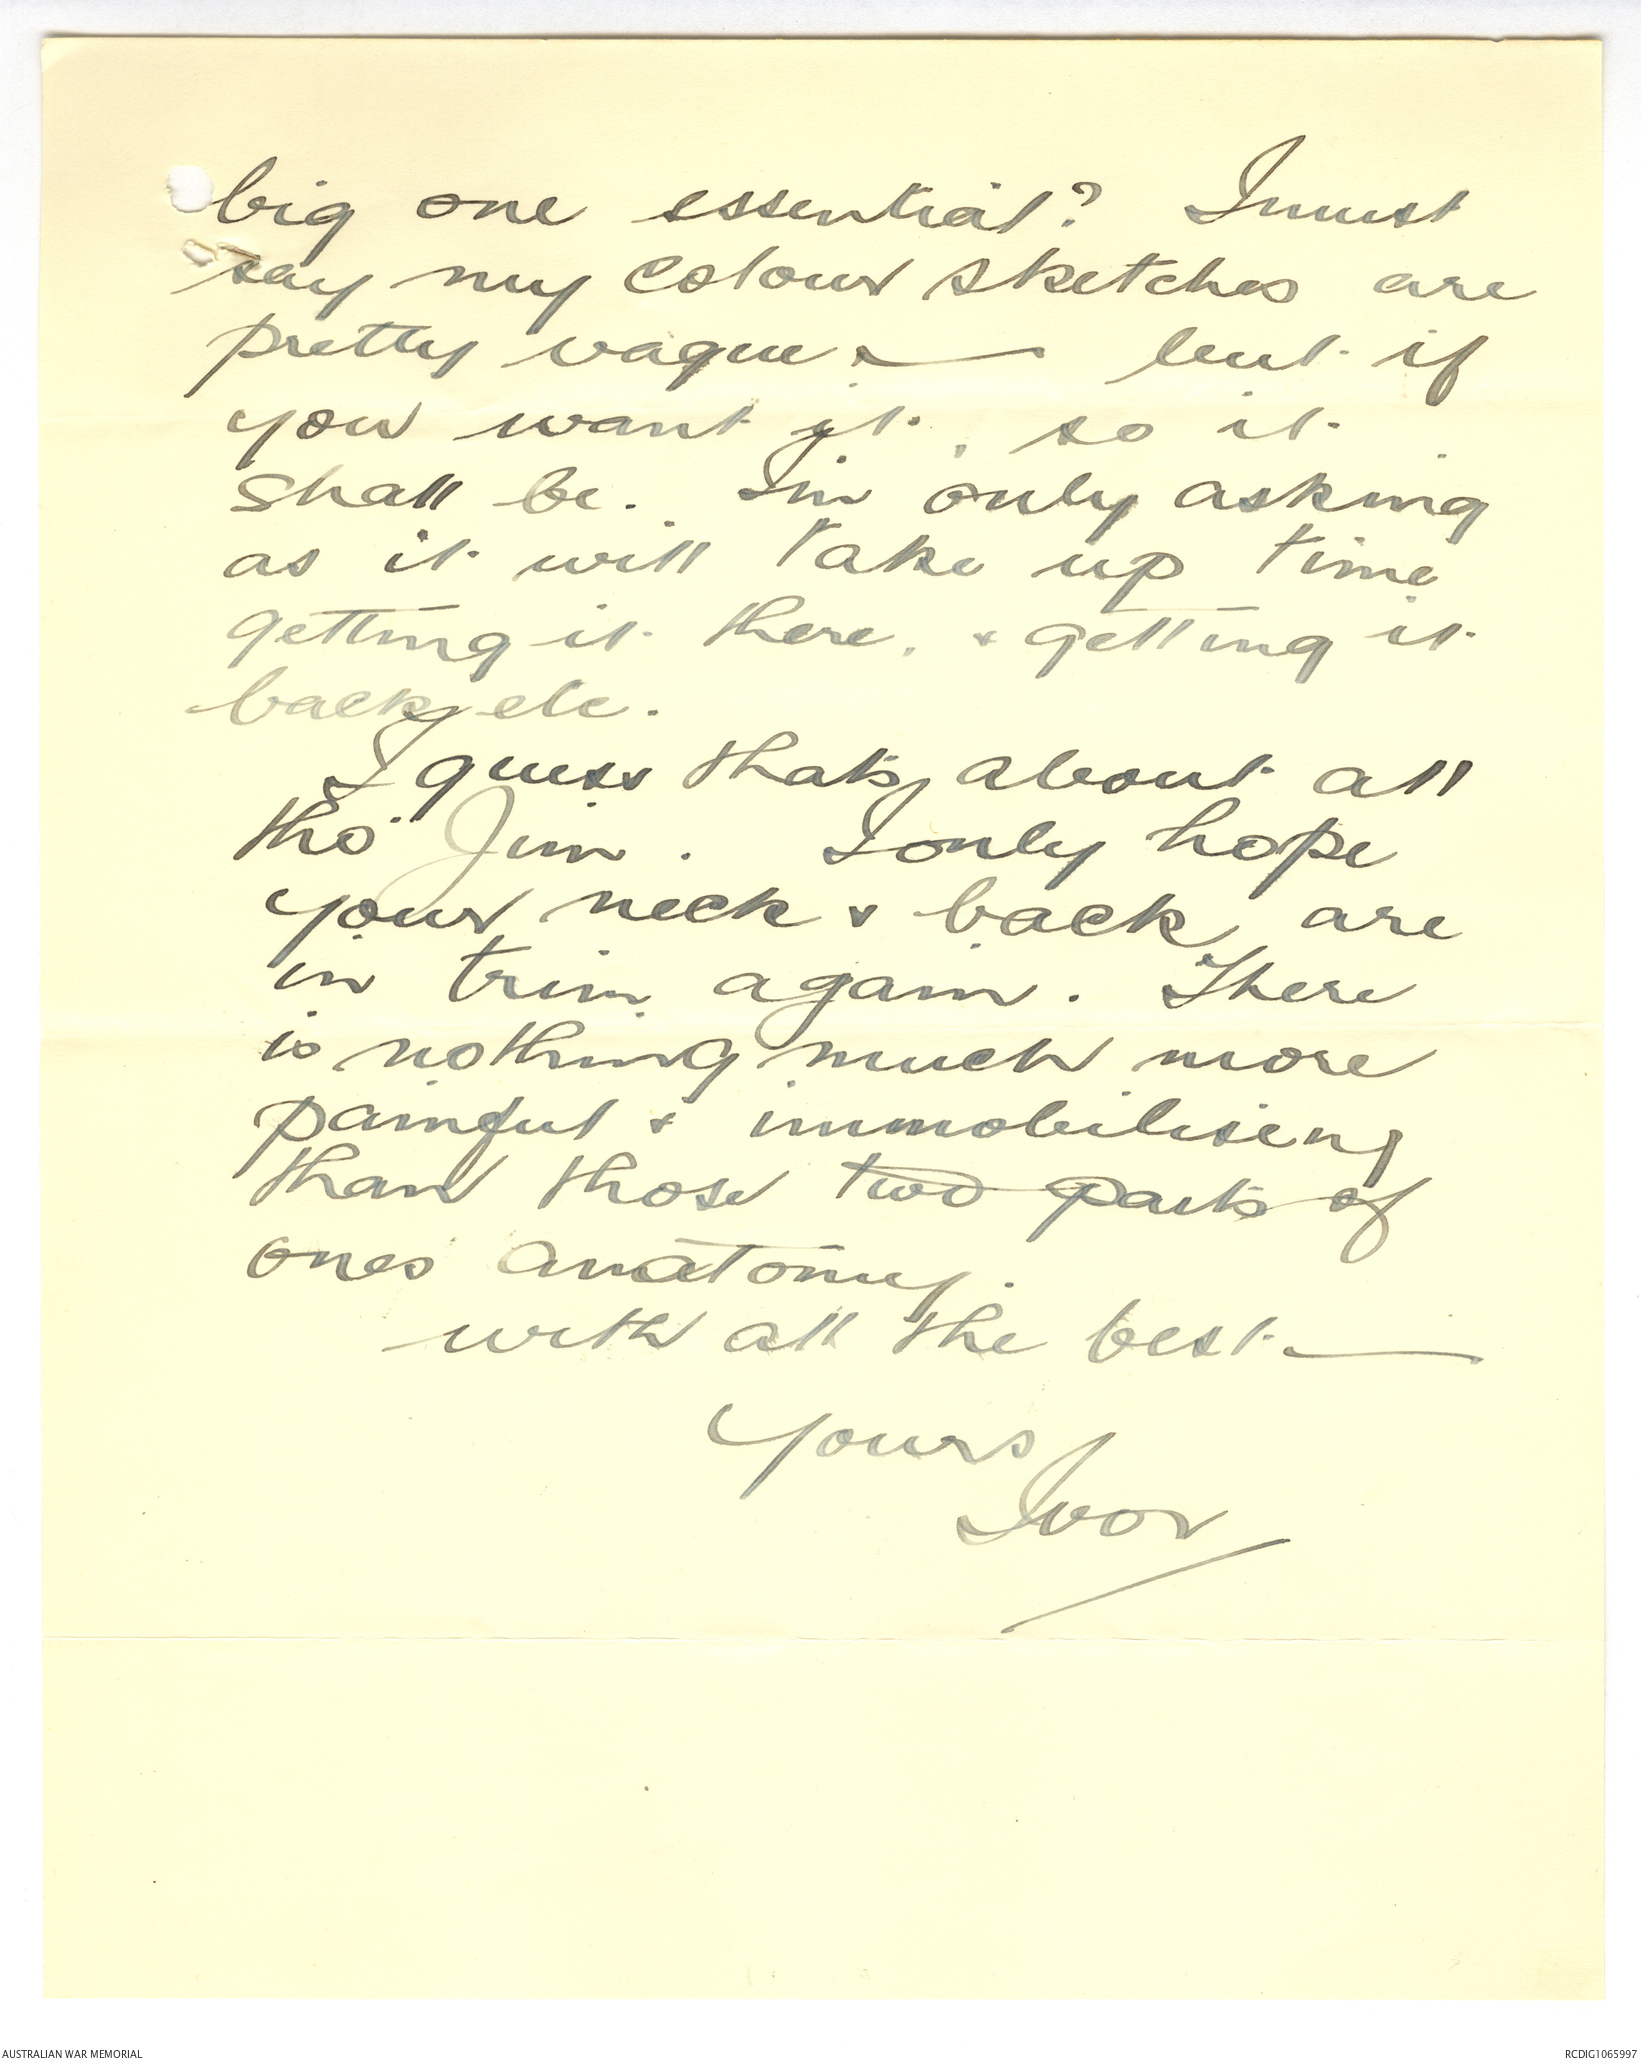 big one essential? I must
say my colour sketches are
pretty vague — but if
you want it, so it
shall be. Im only asking
as it will take up time
getting it there, & getting it
back etc.
I guess thats about all
tho' Jim. I only hope
your neck & back are
in trim again. There
is nothing much more
painful & immobilising
than those two parts of
ones anatomy.
with all the best —
Yours
Ivor
AUSTRALIAN WAR MEMORIAL
RCDIG1065997